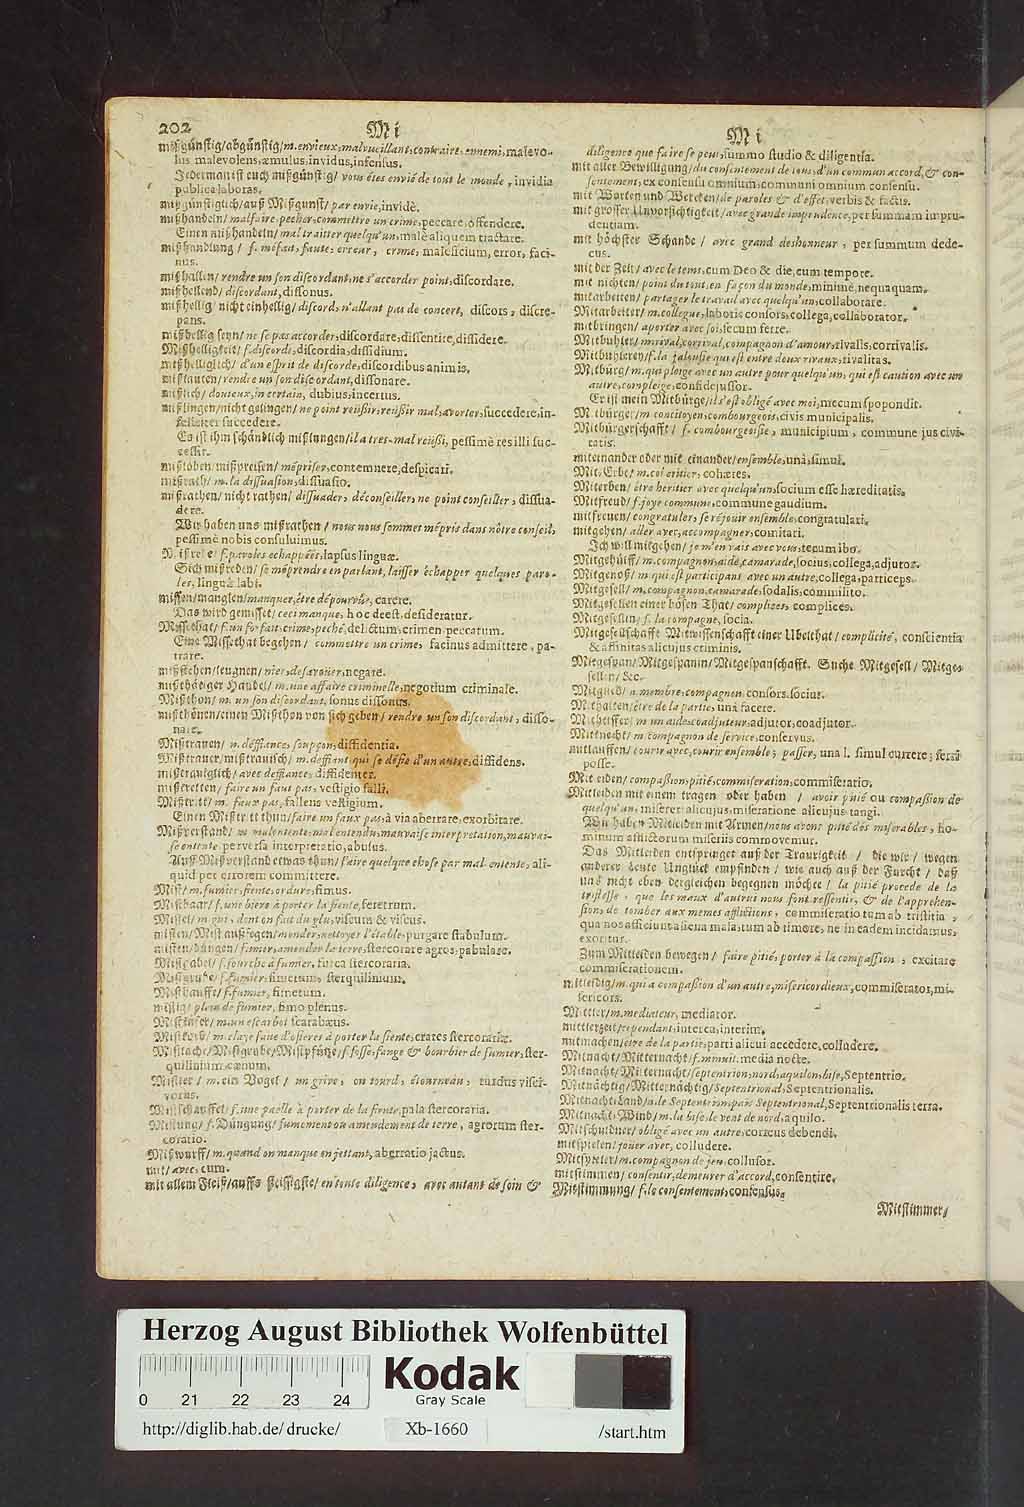 202
Mi
mißgünstig/abgünstig/m. envieux, malveuillant, contraire, ennemi, malevo-
lus malevolens, æmulus, invidus, infensus.
Jedermañ ist euch mißgünstig/ vous étes envié de tout le monde, invidia
publica laboras.
mißgünstiglich/auß Mißgunst/ par envie, invidè.
mißhandeln/ malfaire, pecher, committre un crime, peccare, offendere.
Einen mißhandeln/ mal traitter quelqu'un, malè aliquem tractare.
mißhandlung / f. méfait, faute, erreur, crime, maleficium, error, faci-
nus.
mißhallen/ rendre un son discordant, ne s'accorder point, discordare.
mißhellend/ discordant, dissonus.
mißhellig nicht einhellig/ discord, n'allant pas de concert, discors, discre-
pans.
mißhellig seyn/ ne se pas accorder, discordare, dissentire, dissidere.
Mißhelligkeit/ f. discord, discordia, dissidium.
mißhelliglich/ d'un esprit de discorde, discordibus animis,
mißlauten/ rendre un son discordant, dissonare.
mißlich/ douteux, incertain, dubius, incertus.
mißlingen/nicht gelingen/ ne point reüßir, reüßir mal, avorter, succedere, in-
feliciter succedere.
Es ist ihm schändlich mißlungen/ il a tres-mal reüßi, pessimè res illi suc-
cessit.
mißloben/ mißpreisen/ mépriser, contemnere, despicari.
mißrath/ m. la dissuasion, dissuasio.
mißrathen/ nicht rathen/ dissuader, déconseiller, ne point conseiller, dissua-
dere.
Wir haben uns mißrathen / nous nous sommes mépris dans nôtre conseil,
pessimè nobis consuluimus.
f. paroles echappées, lapsus linguæ.
Sich mißreden/ se méprendre en parlant, laisser échapper quelques paro-
les, linguâ labi.
missen/manglen/ manquer, étre dépourvûe, carere.
Das wird gemisset/ ceci manque, hoc deest, desideratur.
Missethat/ f. un forfait, crime, peché, delictum, crimen, peccatum.
Eine Missethat begehen/ commettre un crime, facinus admittere, pa-
trare.
leugnen/ nier, desavoüer, negare.
mißthädiger Handel/ m. une affaire criminelle, negotium criminale.
Mißthon/ m. un son discordant, sonus dissonus.
mißthönen/einen Mißthon von sich geben/ rendre un son discordant, disso-
nare.
Mißtrauen/ n. deffiance, soupçon, diffidentia.
Mißtrauer/mißtrauisch/ m. deffiant qui se défie d'un autre, diffidens.
mißtrauiglich/ avec deffiance, diffidenter.
mißtretten/ faire un faut pas, vestigio falli.
Mißtritt/ m. faux pas, fallens vestigium.
Einen Mißtritt thun/ faire un faux pas, à via aberrare, exorbitare.
Mißverstand/ m. malentente, mal entendu, mauvaise interpretation, mauvai-
se entente, perversa interpretatio, abusus.
Auß Mißverstand etwas thun/ faire quelque chose par mal entente, ali-
quid per errorem committere.
Mist/ m. fumier, fiente, ordure, fimus.
Mistbaar/ f. une biére à porter la fiente, feretrum.
Mistel/ m. gui, dont on fait du glu, viscum & viscus.
misten/ Mist außfegen/ monder, nettoyer l'étable, purgare stabulum.
misten/düngen/ fumer, amender la terre, stercorare agros, pabulare.
Mistgabel/ f. fourche à fumier, furca stercoraria.
Mistgrube/ f. fumier, fimetum, sterquilinium.
Misthauffe/ f. fumier, fimetum.
mistig/ plein de fumier, fimo plenus.
Mistkäfer/ m. un escarbot scarabæus.
Mistkorb/ m. claye faite d'osieres à porter la fiente, crates stercorariæ.
Mistlache/Mistgrube/Mistpfütze/ f. fosse, fange & bourbier de fumier, ster-
quilinium, cœnum.
Mistler/ m. ein Vogel/ un grive, ou tourd, étourneau, turdus visci-
vorus.
Mistschauffel/ f. une paelle à porter de la fiente, pala stercoraria.
Mistung/ f. Düngung/ fumement ou amendement de terre, agrorum ster-
coratio.
Mißwurff/ m. quand on manque en jettant, aberratio jactus.
mit/ avec, cum.
mit allem Fleiß/auffs fleissigste/ en toute diligence, avec autant de soin &
Mi
diligence que faire se peut, summo studio & diligentia.
mit aller Bewilligung/ du consentement de tous, d'un commun accord, & con-
sentement, ex consensu omnium, communi omnium consensu.
mit Worten und Wercken/ de paroles & d'effet, verbis & factis.
mit grosser Unvorsichtigkeit/ avec grande imprudence, per summam impru-
dentiam.
mit höchster Schande / avec grand deshonneur, per summum dede-
cus.
mit der Zeit/ avec le tems, cum Deo & die, cum tempore.
mit nichten/ point du tout, en façon du monde, minimè, nequaquam.
mitarbeiten/ partager le travail avec quelqu'un, collaborare.
Mitarbeiter/ m. collegue, laboris consors, collega, collaborator.
mitbringen/ aporter avec soi, secum ferre.
Mitbuhler/ m. rival, corrival, compagnon d'amour, rivalis, corrivalis.
Mitbuhleren/ f. la jalousie qui est entre deux rivaux, rivalitas.
Mitbürg/ m. qui pleige avec un autre pour quelqu'un, qui est caution avec un
autre, compleige, confidejussor.
Er ist mein Mitbürge/ il s'est obligé avec moi, mecum spopondit.
Mitbürger/ m. concitoyen, combourgeois, civis municipalis.
Mitbürgerschafft/ f. combourgeoisie, municipium, commune jus civi-
tatis.
miteinander oder mit einander/ ensemble, unà, simul.
Mit Erbe/ m. coheritier, cohæres.
Miterben/ étre heritier avec quelqu'un, socium esse hæreditatis.
Mitfreud/ f. joye commune, commune gaudium.
mitfreuen/ congratuler, se réjouir ensemble, congratulari.
mitgehen/ aller avec, accompagner, comitari.
Ich will mitgehen/ je m'en vais avec vous, tecum ibo.
Mitgehülff/ m. compagnon, aide, camarade, socius, collega, adjutor.
Mitgenoß/ m. qui est participant avec un autre, collega, particeps.
Mitgesell/ m. compagnon, camarade, sodalis, commilito.
Mitgesellen einer bösen That/ complices, complices.
Mitgesellin/ f. la compagne, socia.
Mitgesellschafft Mitwissenschafft einer Ubelthat/ complicité, conscientia
& affinitas alicujus criminis.
Mitgespan/Mitgespanin/Mitgespanschafft. Suche Mitgesell/ Mitge-
sellen/ &c.
Mitglied/ n. membre, compagnon, consors, socius.
Mithalten/ étre de la partie, unà facere.
Mithelffer/ m. un aide, coadjuteur, adjutor, coadjutor.
Mitknecht/ m. compagnon de service, conservus.
mitlauffen/ courir avec, courir ensemble, passer, una l. simul currere; ferri
posse.
Mitleiden/ compaßion, pitié, commiseration, commiseratio.
Mitleiden mit einem tragen oder haben / avoir pitié ou compaßion de
quelqu'un, misereri alicujus, miseratione alicujus tangi.
Wir haben Mitleiden mit Armen/ nous avons pitié des miserables, ho-
minum afflictorum miseriis commovemur.
Das Mitleiden entspringet auß der Traurigkeit / die wir/ wegen
anderer Leute Unglück empfinden / wie auch auß der Furcht / daß
uns nicht eben dergleichen begegnen möchte / la pitié procede de la
tristesse, que les maux d'autrui nous font ressentir, & de l'apprehen-
sion, de tomber aux memes afflictions, commiseratio tum ab tristitia,
qua nos afficiunt aliena mala, tum ab timore, ne in eadem incidamus,
exoritur.
Zum Mitleiden bewegen/ faire pitié, porter à la compaßion, excitare
commiserationem.
mitleidig/ m. qui a compaßion d'un autre, misericordieux, commiserator, mi-
sericors.
Mittler/ m. mediateur, mediator.
mittlerzeit/ cependant, interea, interim.
mitmachen/ étre de la partie, parti alicui accedere, colludere.
Mitnacht/Mitternacht/ f. minuit, media nocte.
Mitnacht/Mitternacht/ septentrion, nord, aquilon, bise, Septentrio.
Mitnächtig/Mitternächtig/ Septentrional, Septentrionalis.
Mitnacht Land/ n. le Septentrion, païs Septentrional, Septentrionalis terra.
Mitnacht Wind/ m. la bise, le vent de nord, aquilo.
Mitschuldner/ obligé avec un autre, correus debendi.
mitspielen/ joüer avec, colludere.
Mitspieler/ m. compagnon de jeu, collusor.
mitstimmen/ consentir, demeurer d'accord, consentire.
Mitstimmung/ f. le consentement, consensus.
Mitstimmer/
Herzog August Bibliothek Wolfenbüttel
Kodak
Gray Scale
0 21 22 23 24
http://diglib.hab.de/drucke/ Xb-1660 /start.htm